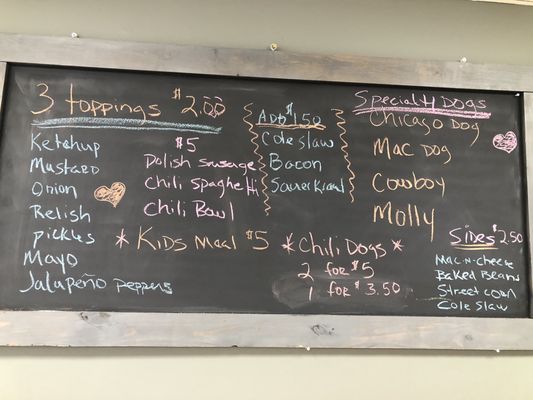 3 toppings $2.00
Ketchup
Mustard
Onion
Relish
pickles
Mayo
Jalapeño peppers
$5
Polish sausage
chili spaghetti
Chili Bowl
* Kids Meal $5
ADD $1.50
Cole slaw
Bacon
Sauerkraut
* Chili Dogs *
2 for $5
1 for $3.50
Specialty Dogs
Chicago Dog
Mac Dog
Cowboy
Molly
Sides $2.50
Mac-n-cheese
Baked Beans
Street corn
Cole slaw